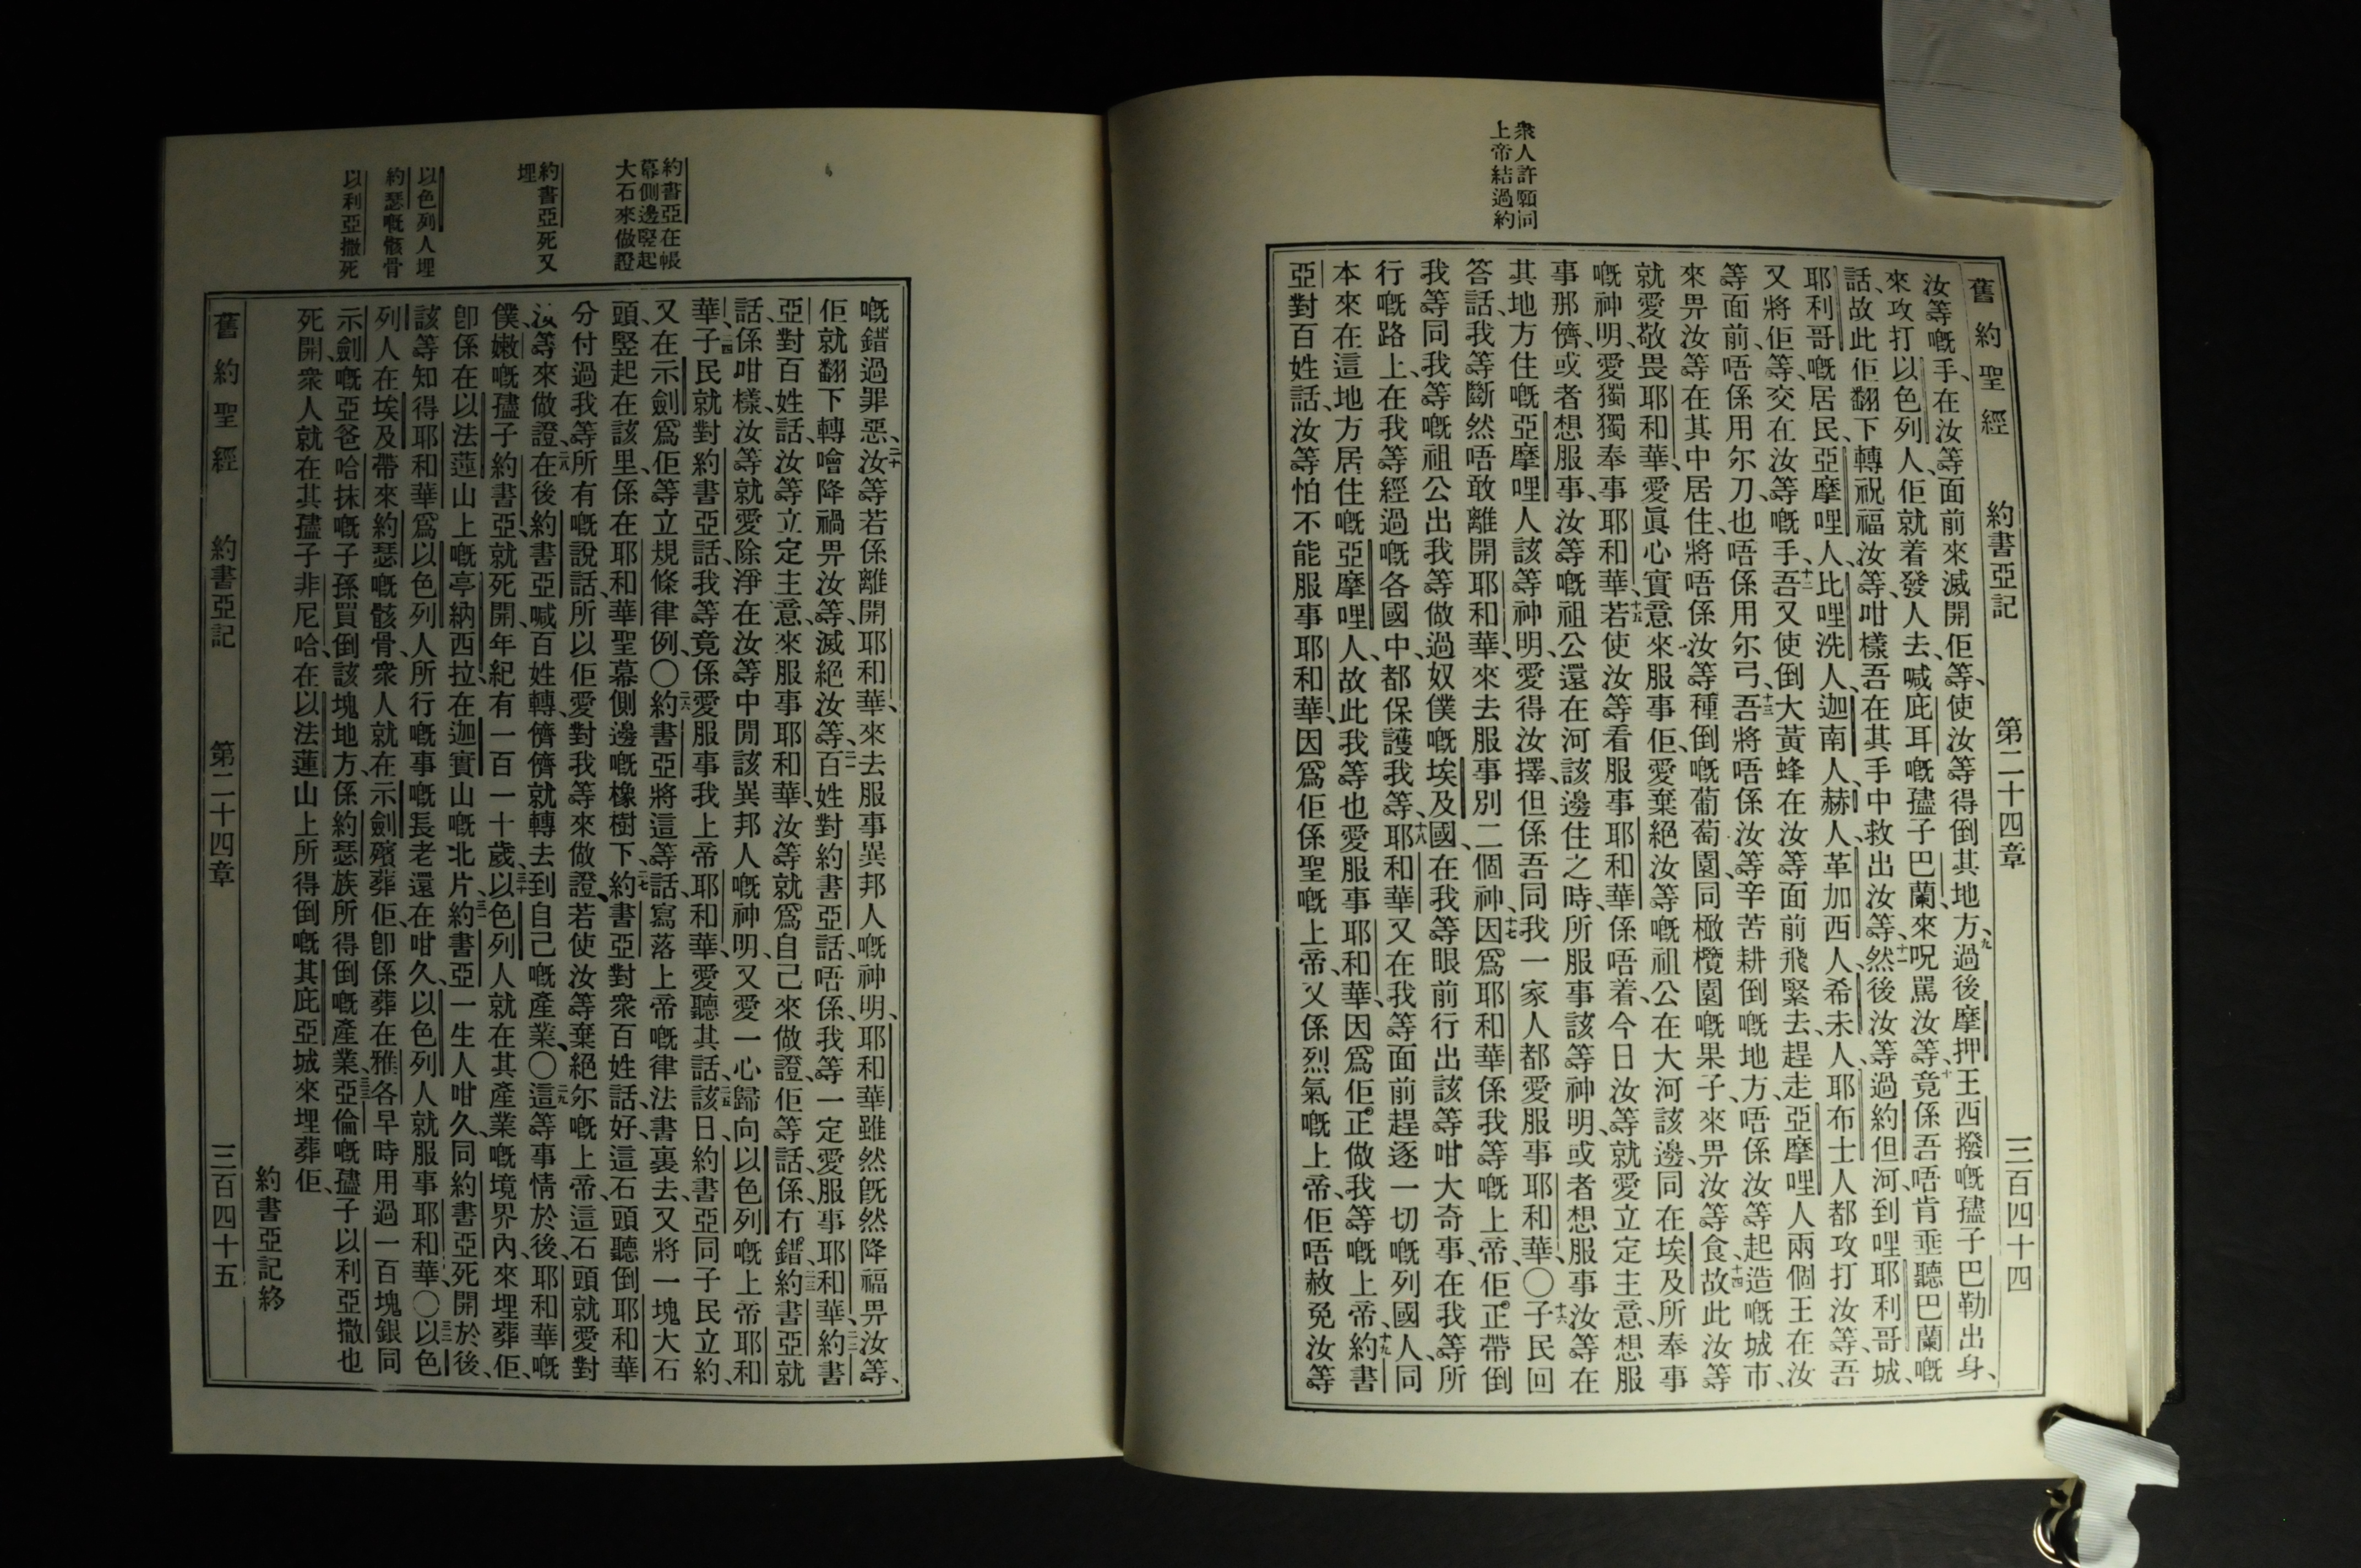 衆人許願同
上帝結過約
舊約聖經 約書亞記 第二十四章 三百四十四
汝等嘅手、在汝等面前來滅開佢等、使汝等得倒其地方、九過後摩押王西撥嘅孻子巴勒出身、
來攻打以色列人、佢就着發人去、喊庇耳嘅孻子巴蘭、來呪罵汝等、十竟係吾唔肯垂聽巴蘭嘅
話、故此佢翻下轉祝福汝等、咁樣吾在其手中救出汝等、十一然後汝等過約但河、到哩耶利哥城、
耶利哥嘅居民、亞摩哩人、比哩洗人、迦南人、赫人、革加西人、希未人、耶布士人都攻打汝等、吾
又將佢等、交在汝等嘅手、十二吾又使倒大黃蜂在汝等面前飛緊去、趕走亞摩哩人兩個王在汝
等面前、唔係用尔刀、也唔係用尔弓、十三吾將唔係汝等辛苦耕倒嘅地方、唔係汝等起造嘅城市、
來畀汝等在其中居住、將唔係汝等種倒嘅葡萄園、同橄欖園嘅果子、來畀汝等食、十四故此汝等
就愛敬畏耶和華、愛眞心實意來服事佢、愛棄絕汝等嘅祖公在大河該邊、同在埃及所奉事
嘅神明、愛獨獨奉事耶和華、十五若使汝等看服事耶和華係唔着、今日汝等就愛立定主意、想服
事那儕、或者想服事、汝等嘅祖公、還在河該邊住之時、所服事該等神明、或者想服事汝等在
其地方住嘅亞摩哩人該等神明、愛得汝擇、但係吾同我一家人都愛服事耶和華、〇十六子民回
答話、我等斷然唔敢離開耶和華、來去服事別二個神、十七因爲耶和華係我等嘅上帝、佢正帶倒
我等同我等嘅祖公出我等做過奴僕嘅埃及國、在我等眼前行出該等咁大奇事、在我等所
行嘅路上、在我等經過嘅各國中、都保護我等、十八耶和華又在我等面前趕逐一切嘅列國人、同
本來在這地方居住嘅亞摩哩人、故此我等也愛服事耶和華、因爲佢正做我等嘅上帝、十九約書
亞對百姓話、汝等怕不能服事耶和華、因爲佢係聖嘅上帝、又係烈氣嘅上帝、佢唔赦免汝等
約書亞在帳
幕側邊竪起
大石來做證
約書亞死又
埋
以色列人埋
約瑟嘅骸骨
以利亞撒死
嘅錯過罪惡、二十汝等若係離開耶和華、來去服事異邦人嘅神明、耶和華雖然旣然降福畀汝等、
佢就翻下轉噲降禍畀汝等、滅絕汝等、二一百姓對約書亞話、唔係、我等一定愛服事耶和華、二二約書
亞對百姓話、汝等立定主意、來服事耶和華、汝等就爲自己來做證、佢等話、係冇錯、二三約書亞就
話、係咁樣、汝等就愛除淨在汝等中間該異邦人嘅神明、又愛一心歸向以色列嘅上帝耶和
華、二四子民就對約書亞話、我等竟係愛服事我上帝耶和華、愛聽其話、二五該日、約書亞同子民立約、
又在示劍爲佢等立規條律例、〇二六約書亞將這等話、寫落上帝嘅律法書裏去、又將一塊大石
頭、竪起在該里、係在耶和華聖幕側邊嘅橡樹下、二七約書亞對衆百姓話、好、這石頭聽倒耶和華
分付過我等所有嘅說話、所以佢愛對我等來做證、若使汝等棄絕尔嘅上帝、這石頭就愛對
汝等來做證、二八在後約書亞喊百姓轉、儕儕就轉去到自己嘅產業、〇二九這等事情於後、耶和華嘅
僕、嫩嘅孻子約書亞、就死開、年紀有一百一十歲、三十以色列人就在其產業嘅境界內、來埋葬佢、
卽係在以法蓮山上嘅亭納西拉、在迦實山嘅北片、三一約書亞一生人咁久、同約書亞死開於後、
該等知得耶和華爲以色列人所行嘅事嘅長老還在咁久、以色列人就服事耶和華、〇三二以色
列人在埃及帶來約瑟嘅骸骨、衆人就在示劍殯葬佢、卽係葬在雅各早時用過一百塊銀同
示劍嘅亞爸哈抹嘅子孫買倒該塊地方、係約瑟族所得倒嘅產業、三三亞倫嘅孻子以利亞撒也
死開、衆人就在其孻子非尼哈、在以法蓮山上所得倒嘅其庇亞城來埋葬佢、
約書亞記終
舊約聖經 約書亞記 第二十四章 三百四十五